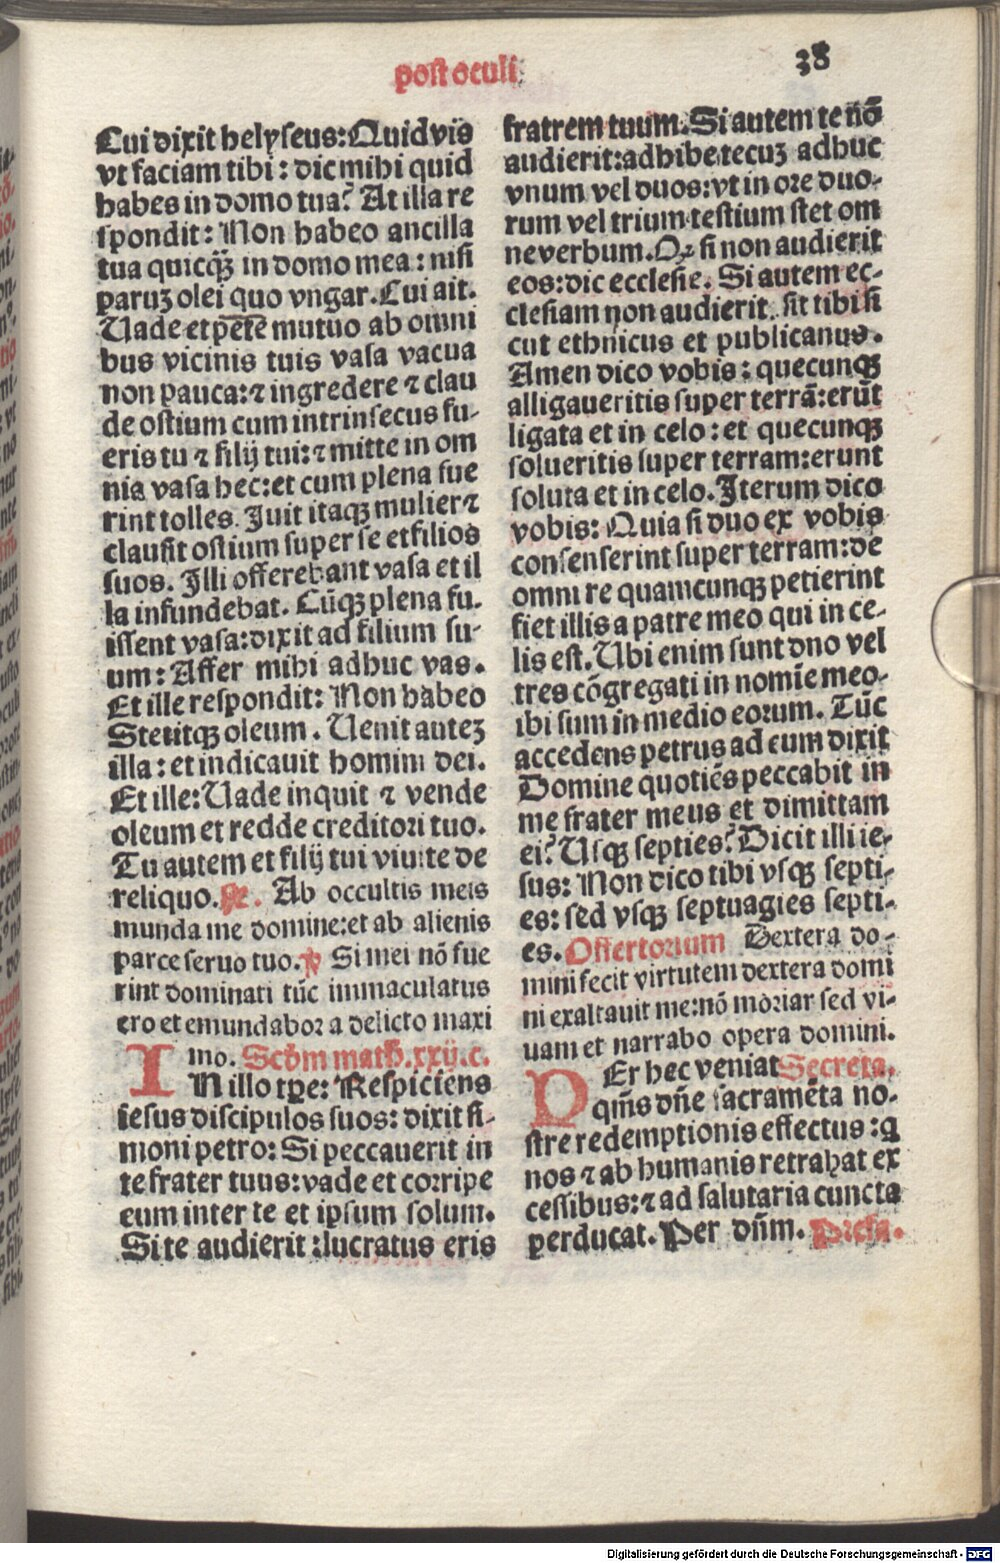 post oculi
38
Cui dixit helyseus: Quid vis
vt faciam tibi: dic mihi quid
habes in domo tua? At illa re
spondit: Non habeo ancilla
tua quicq̃ꝫ in domo mea: nisi
paruꝫ olei quo vngar. Cui ait.
Uade et pẽtẽ mutuo ab omni
bus vicinis tuis vasa vacua
non pauca: ⁊ ingredere ⁊ clau
de ostium cum intrinsecus fu-
eris tu ⁊ filij tui: ⁊ mitte in om
nia vasa hec: et cum plena fue
rint tolles. Iuit itaqꝫ mulier ⁊
clausit ostium super se et filios
suos. Illi offerebant vasa et il
la infundebat. Cũqꝫ plena fu-
issent vasa: dixit ad filium su-
um: Affer mihi adhuc vas.
Et ille respondit: Non habeo
Stetitqꝫ oleum. Uenit auteꝫ
illa: et indicauit homini dei.
Et ille: Uade inquit ⁊ vende
oleum et redde creditori tuo.
Tu autem et filij tui viuite de
reliquo. Ab occultis meis
munda me domine: et ab alienis
parce seruo tuo. ℣ Si mei nõ fue
rint dominati tũc immaculatus
ero et emundabor a delicto maxi
mo. Scḋm math. xxij. c.
IN illo tp̃e: Respiciens
iesus discipulos suos: dixit si-
moni petro: Si peccauerit in
te frater tuus: vade et corripe
eum inter te et ipsum solum.
Si te audierit: lucratus eris
fratrem tuum. Si autem te nõ
audierit: adhibe tecuꝫ adhuc
vnum vel duos: vt in ore duo-
rum vel trium testium stet om
ne verbum. Qꝫ si non audierit
eos: dic ecclesie. Si autem ec-
clesiam non audierit. sit tibi si
cut ethnicus et publicanus.
Amen dico vobis: quecunqꝫ
alligaueritis super terrã: erũt
ligata et in celo: et quecunqꝫ
solueritis super terram: erunt
soluta et in celo. Iterum dico
vobis: Quia si duo ex vobis
consenserint super terram: de
omni re quamcunqꝫ petierint
fiet illis a patre meo qui in ce-
lis est. Ubi enim sunt duo vel
tres cõgregati in nomĩe meo-
ibi sum in medio eorum. Tũc
accedens petrus ad eum dixit
Domine quotiẽs peccabit in
me frater meus et dimittam
ei? Usqꝫ septies? Dicit illi ie-
sus: Non dico tibi vsqꝫ septi-
es: sed vsqꝫ septuagies septi-
es. Offertorium Dextera do-
mini fecit virtutem dextera domi
ni exaltauit me: nõ moriar sed vi-
uam et narrabo opera domini.
PEr hec veniat Secreta.
qm̃s dñe sacramẽta no-
stre redemptionis effectus: q
nos ⁊ ab humanis retrahat ex
cessibus: ⁊ ad salutaria cuncta
perducat. Per dñm. Prefa.
Digitalisierung gefördert durch die Deutsche Forschungsgemeinschaft - DFG